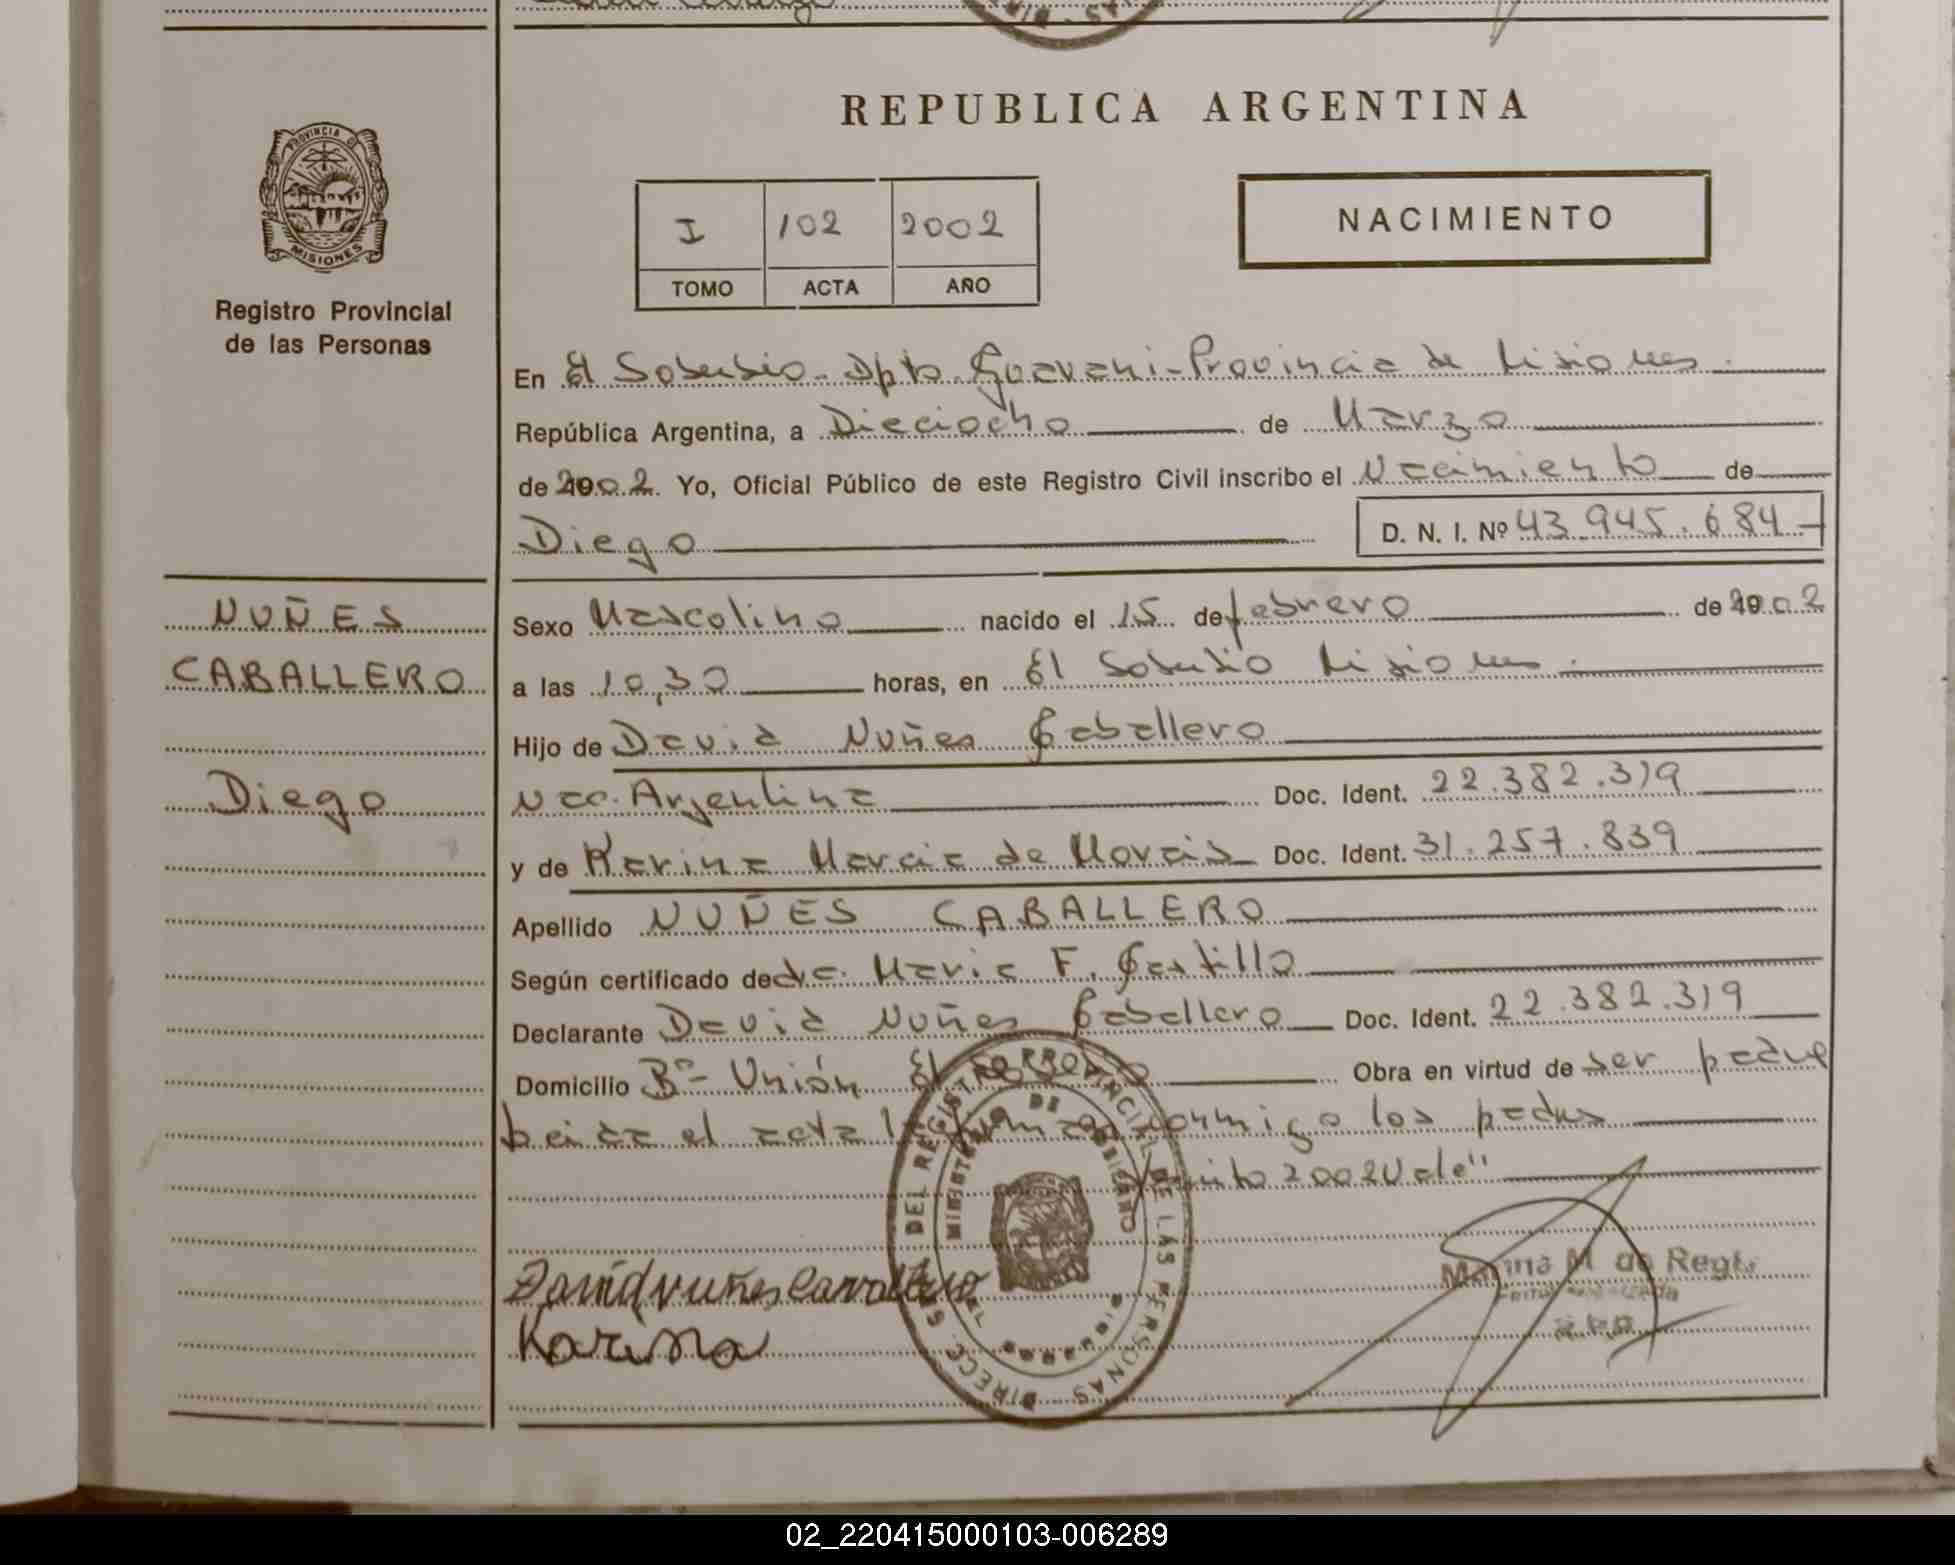 REPUBLICA ARGENTINA
PROVINCIA DE
MISIONES
Registro Provincial
de las Personas
I 102 2002
TOMO ACTA AÑO
NACIMIENTO
En El Soberbio - Dpto Guarani - Provincia de Misiones.
República Argentina, a Dieciocho de Marzo
de 2002. Yo, Oficial Público de este Registro Civil inscribo el Nacimiento de
Diego D. N. I. Nº 43.945.684
NUÑES
CABALLERO
Diego
Sexo Masculino nacido el 15 de febrero de 2002
a las 10,30 horas, en El Soberbio Misiones.
Hijo de David Nuñes Caballero
Nac. Argentina Doc. Ident. 22.382.319
y de Karina Marcia de Morais Doc. Ident. 31.257.839
Apellido NUÑES CABALLERO
Según certificado de dra. Maria F. Castillo
Declarante David Nuñes Caballero Doc. Ident. 22.382.319
Domicilio Bº- Unión El Soberbio Obra en virtud de ser padre
el acta la firman conmigo los padres
2002 Vale"
David nuñes Cavallero
Karina
DIRECC. GRAL. DEL REGISTRO PROVINCIAL DE LAS PERSONAS
MINISTERIO DE
02_220415000103-006289